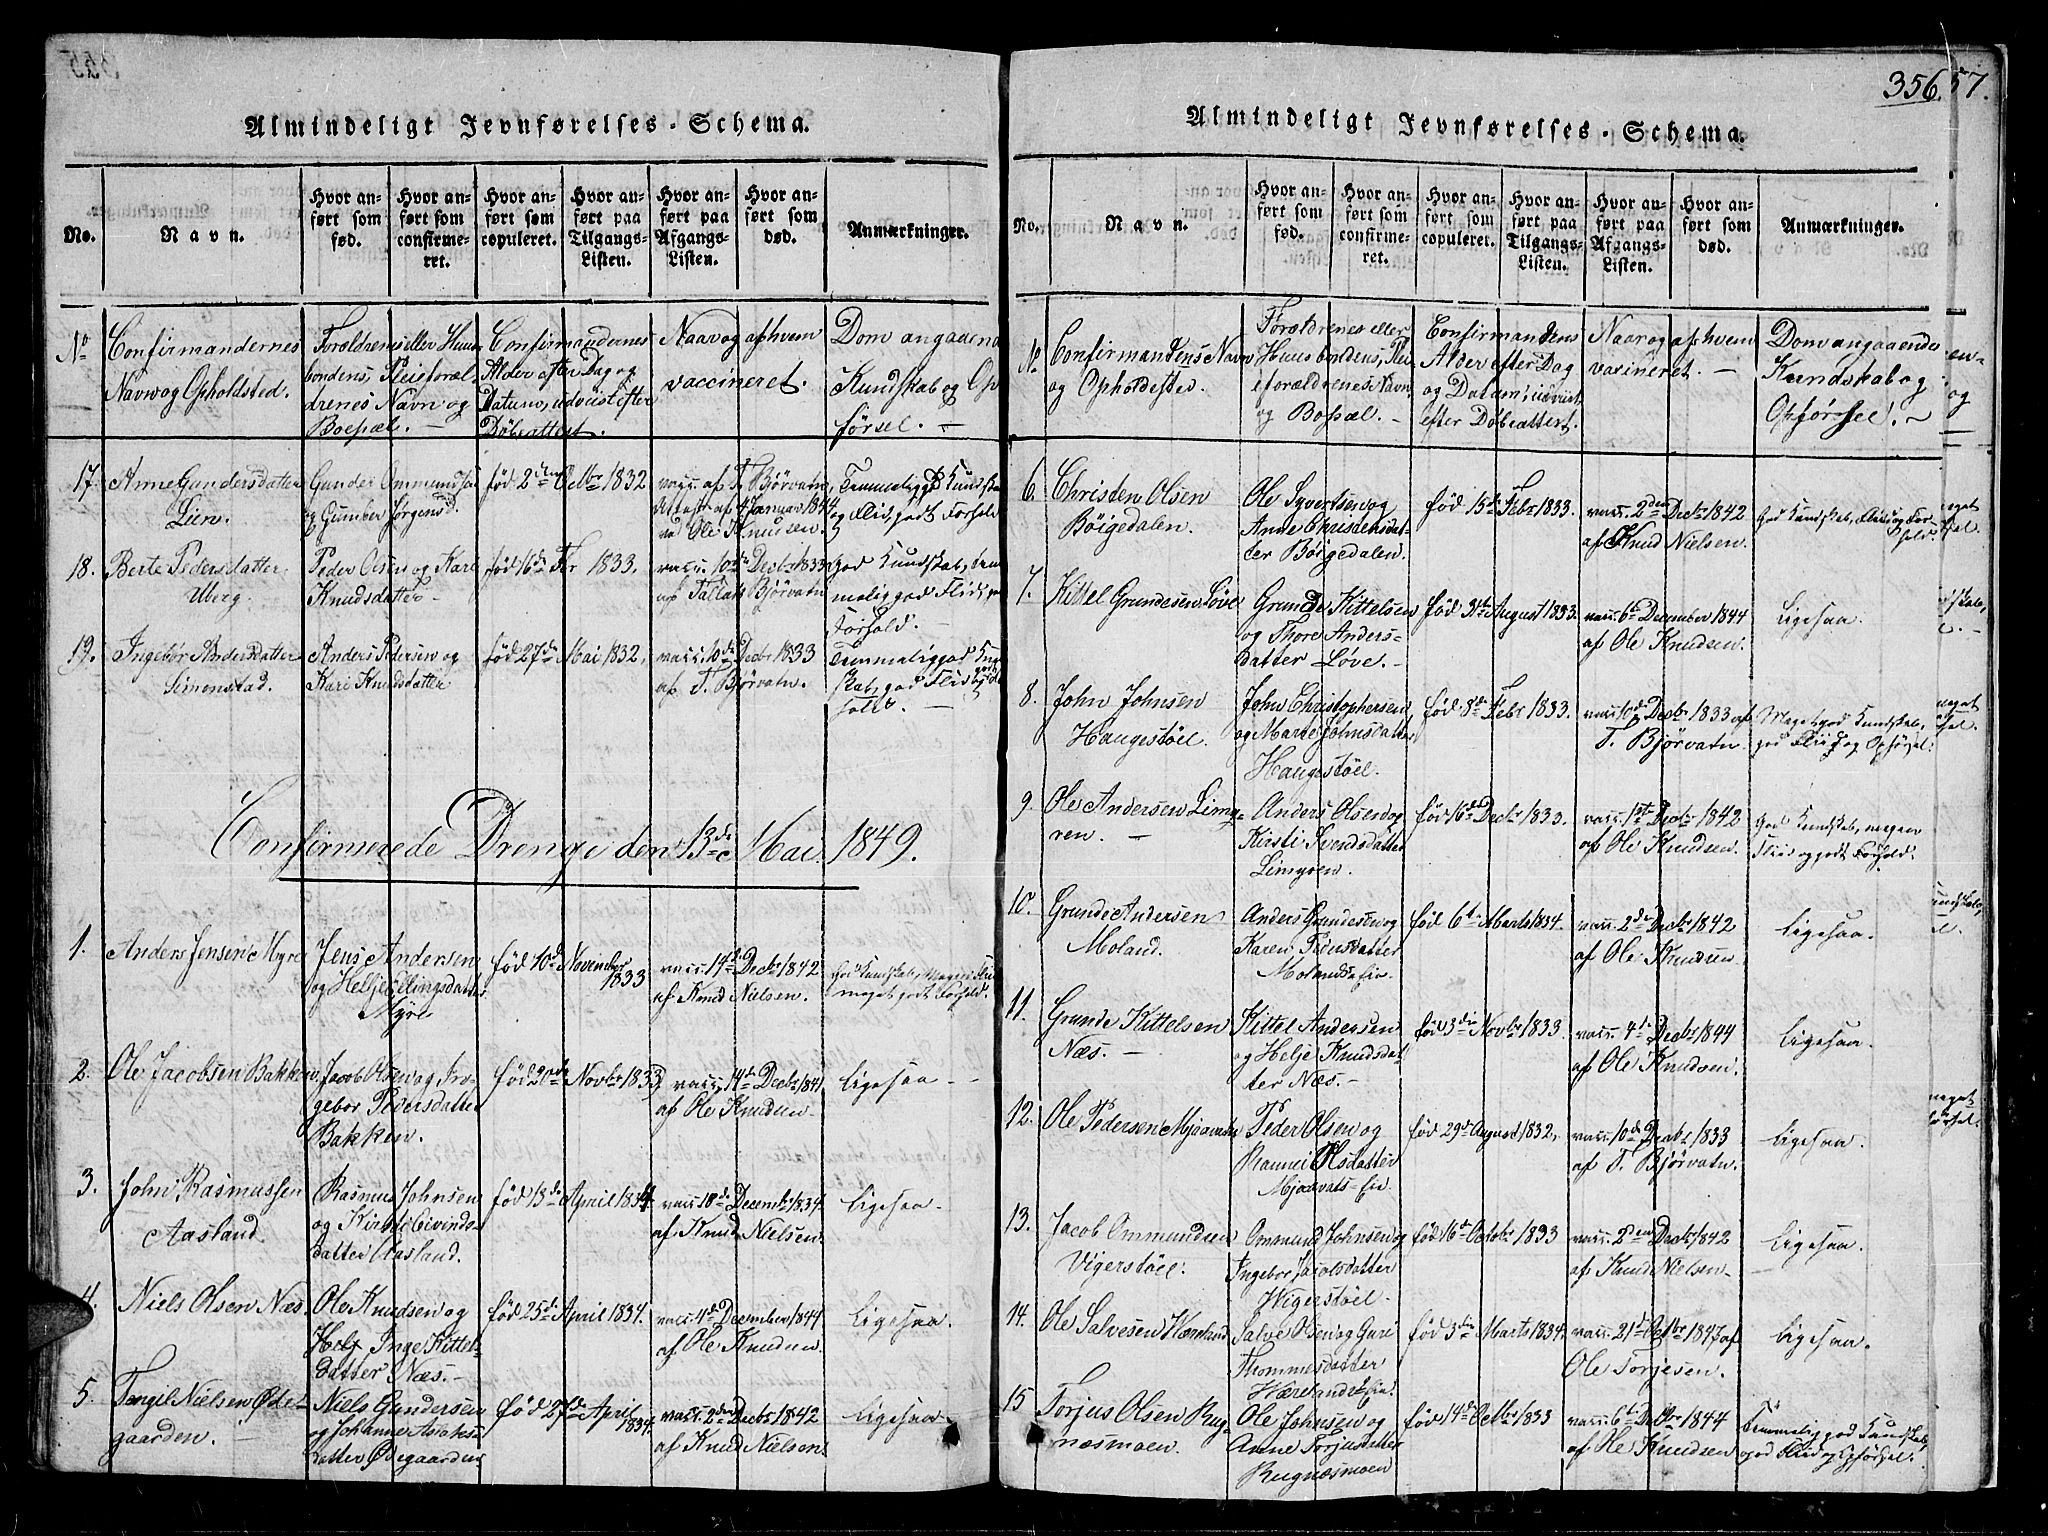 Almindeligt Jevnførelses-Schema.
No.
Navn.
Hvor anført som fød.
Hvor anført som confirmeret.
Hvor anført som copuleret.
Hvor anført paa Tilgangs-Listen.
Hvor anført paa Afgangs-Listen.
Hvor anført som død.
Anmærkninger.
No
Confirmandernes
Navn og Opholdsted.
Forældrenes eller Huus
bondens, Pleieforæl-
drenes Navn og
Boepæl. -
Confirmandernes
Alder efter Dag og
Datum, udviist efter
Døbeattest.
Naar og af hvem
vaccineret.
Dom angaaend
Kundskab og Op
førsel. -
17.
Anne Gundersdatter
Lien.
Gunder Ommundsen
og Gunber Jørgensd.
fød 2den Octbr 1832
vacc. af T. Bjørvatn
Attest af 4 Januar 1844
ved Ole Knudsen.
Temmelig god Kundska
og Flid, godt Forhold
18.
Berte Pedersdatter
Uberg.
Peder Olsen og Kari
Knudsdatter
fød 16de Fbr 1833.
vacc. 10de Decbr 1833
af Tallak Bjørvatn
God Kundskab, tem
melig god Flid,
Forhold. -
19.
Ingebor Andersdatter
Simonstad.
Anders Pedersen og
Kari Knudsdatter
fød 27de Mai 1832,
vacc. 10de Decbr 1833
af T. Bjørvatn.
Temmelig god Kund
skab, god Flid
hold. -
Confirmerede Drenge den 13de Mai 1849.
1.
Anders Jensen Myre
Jens Andersen
og Helje Ellingsdatter
Myre
fød 10de November
1833
vacc. 14de Decbr 1842
af Knud Nielsen.
God Kundskab, Megen Flid
meget godt Forhold.
2.
Ole Jacobsen Bakken
Jacob Olsen og In-
gebor Pedersdatter
Bakken.
fød 30de Novbr 1833
vacc. 14de Decbr 1841
af Ole Knudsen
Ligesaa -
3.
John Rasmussen
Aasland.
Rasmus Johnsen
og Kirstie Eivinds-
datter Aasland.
fød 13de April 1834
vacc. 10de Decembr 1834
af Knud Nielsen.
Ligesaa.
4.
Niels Olsen Næs.
Ole Knudsen og
Inge Kittels-
datter Næs. -
fød 25de April 1834.
vacc. 4de December 1844
af Ole Knudsen
Ligesaa.
5.
Tengil Nielsen Øde-
gaarden. -
Niels Gundersen
og Johanne Asraks-
datter Ødegaarden
fød 27de April
1834.
vacc. 2den Decbr 1842
af Knud Nielsen
Ligesaa
356.
57.
Almindeligt Jevnførelses-Schema.
No.
Navn.
Hvor anført som fød.
Hvor anført som confirmeret.
Hvor anført som copuleret.
Hvor anført paa Tilgangs-Listen.
Hvor anført paa Afgangs-Listen.
Hvor anført som død.
Anmærkninger.
No
Confirmantens Navn
og Opholdssted.
Forældrenes eller
Huusbondens, Plei
eforældrenes Navn
og Bopæl. -
Confirmantens
Alder efter Dag
og Datum, udviist
efter Døbeattest.
Naar og af hvem
vacineret. -
Dom angaaende
Kundskab og
Opførsel. -
6.
Christen Olsen
Böigedalen.
Ole Syvertsen og
Anne Christensdat-
ter Böigedalen.
fød 15de Febr 1833.
vacc. 2den Decbr 1842
af Knud Nielsen.
God Kundskab, Flid og For-
hold.
7.
Kittel Grundesen Løve
Grunde Kittelsen
og Thore Anders-
datter Løve. -
fød 31te August 1833.
vacc. 6te December 1844
af Ole Knudsen.
Ligesaa.
8.
John Johnsen
Haugestöel.
John Christophersen
og Marte Johnsdatter
Haugestöel.
fød 8de Febr 1833.
vacc. 10de Decbr 1833 af
T. Bjørvatn.
Meget god Kundskab,
god Fliid og Opførsel.
9.
Ole Andersen Limy-
ren. -
Anders Olsen og
Kirsti Svendsdatter
Limyren.
fød 16de Decbr 1833.
vacc. 1ste Decbr 1842
af Ole Knudsen.
God Kundskab, megen
Fliid og godt Forhold.
10.
Grunde Andersen
Moland.
Anders Grundesen og
Karen Pedersdatter
Molandseie
fød 6te Marts 1834.
vacc. 2de Decbr 1842
af Ole Knudsen.
Ligesaa.
11.
Grunde Kittelsen
Næs. -
Kittel Andersen
og Helje Knudsdat-
ter Næs. -
fød 3die Novbr 1833.
vacc. 4de Decbr 1844
af Ole Knudsen.
Ligesaa.
12.
Ole Pedersen Mjaavatn
Peder Olsen og
Raunei Olsdatter
Mjaavats-Eie
fød 29de August 1832,
vacc. 10de Decbr 1833
af T. Bjørvatn.
Ligesaa.
13.
Jacob Ommundsen
Vigerstöel.
Ommund Johnsen og
Ingebor Jacobsdatter
Wigerstöel.
fød 16de Octobr 1833
vacc. 2den Decbr 1842
af Knud Nielsen -
Ligesaa.
14.
Ole Salvesen Wæreland
Salve Olsen og Guri
Thommesdatter
Wærelands Eie.
fød 3die Marts 1834.
vacc. 21de Octbr 1847 af
Ole Torjesen.
Ligesaa.
15
Torjus Olsen Rug-
næsmoen.
Ole Johnsen og
Anne Torjusdatter
Rugnæsmoen
fød 14de Octbr 1833
vacc. 6te Decbr 1844
af Ole Knudsen
Temmelig god Kundskab,
god Fliid og Opførsel.